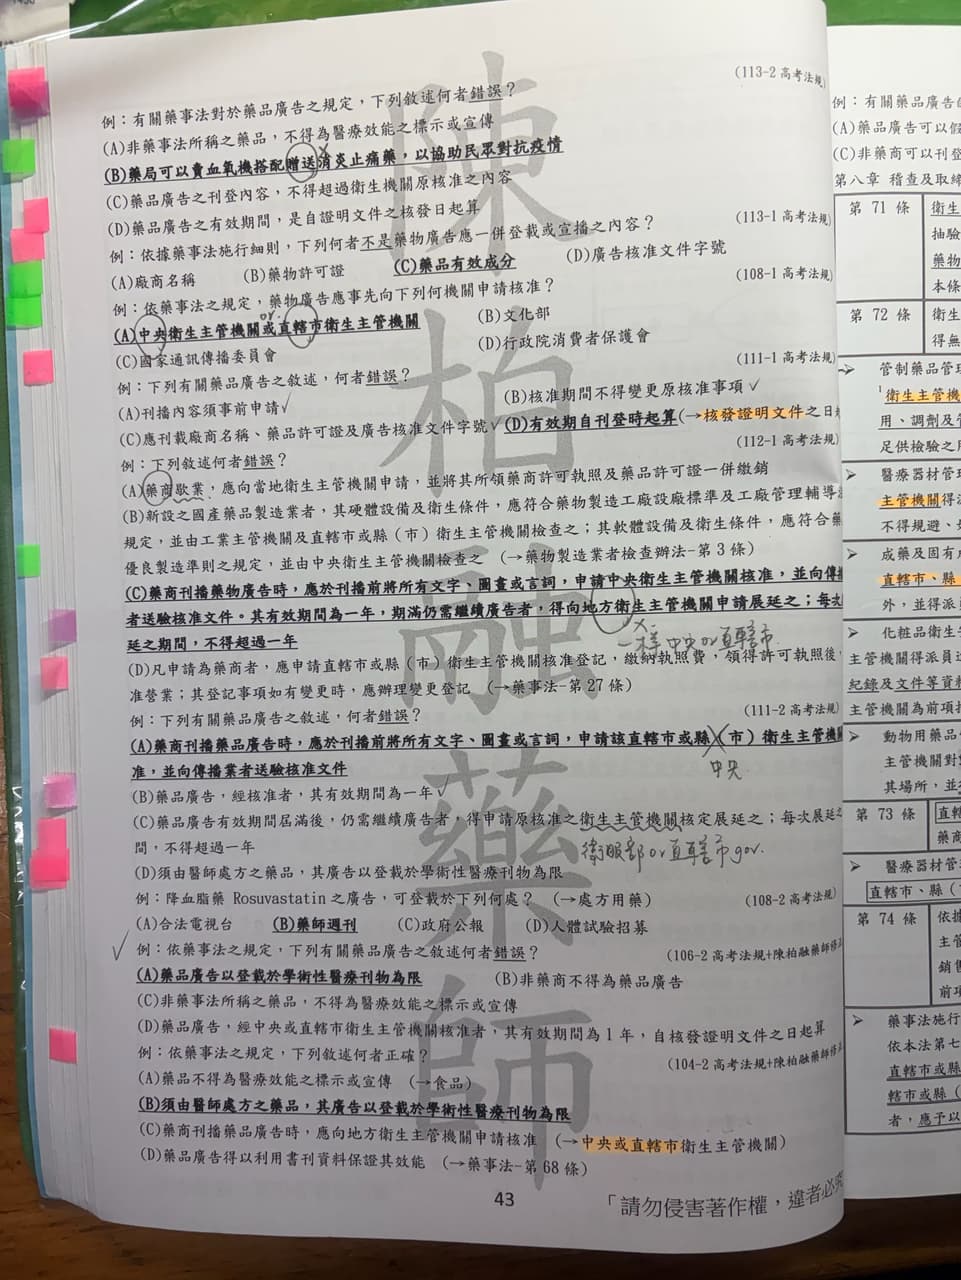 (113-2 高考法規)
例：有關藥事法對於藥品廣告之規定，下列敘述何者錯誤？
(A)非藥事法所稱之藥品，不得為醫療效能之標示或宣傳
(B)藥局可以賣血氧機搭配贈送消炎止痛藥，以協助民眾對抗疫情
(C)藥品廣告之刊登內容，不得超過衛生機關原核准之內容
(D)藥品廣告之有效期間，是自證明文件之核發日起算
(113-1 高考法規)
例：依據藥事法施行細則，下列何者不是藥物廣告應一併登載或宣播之內容？
(A)廠商名稱 (B)藥物許可證 (C)藥品有效成分 (D)廣告核准文件字號
(108-1 高考法規)
例：依藥事法之規定，藥物廣告應事先向下列何機關申請核准？
or
(A)中央衛生主管機關或直轄市衛生主管機關 (B)文化部
(C)國家通訊傳播委員會 (D)行政院消費者保護會
(111-1 高考法規)
例：下列有關藥品廣告之敘述，何者錯誤？
(A)刊播內容須事前申請✓ (B)核准期間不得變更原核准事項✓
(C)應刊載廠商名稱、藥品許可證及廣告核准文件字號✓ (D)有效期自刊登時起算(→核發證明文件之日
(112-1 高考法規)
例：下列敘述何者錯誤？
(A)藥商歇業，應向當地衛生主管機關申請，並將其所領藥商許可執照及藥品許可證一併繳銷
(B)新設之國產藥品製造業者，其硬體設備及衛生條件，應符合藥物製造工廠設廠標準及工廠管理輔導
規定，並由工業主管機關及直轄市或縣（市）衛生主管機關檢查之；其軟體設備及衛生條件，應符合藥
優良製造準則之規定，並由中央衛生主管機關檢查之 (→藥物製造業者檢查辦法-第 3 條)
(C)藥商刊播藥物廣告時，應於刊播前將所有文字、圖畫或言詞，申請中央衛生主管機關核准，並向傳播
者送驗核准文件。其有效期間為一年，期滿仍需繼續廣告者，得向地方衛生主管機關申請展延之；每次
延之期間，不得超過一年
一樣 中央or直轄市
(D)凡申請為藥商者，應申請直轄市或縣（市）衛生主管機關核准登記，繳納執照費，領得許可執照後
准營業；其登記事項如有變更時，應辦理變更登記 (→藥事法-第 27 條)
(111-2 高考法規)
例：下列有關藥品廣告之敘述，何者錯誤？
(A)藥商刊播藥品廣告時，應於刊播前將所有文字、圖畫或言詞，申請該直轄市或縣（市）衛生主管機關
准，並向傳播業者送驗核准文件
中央
(B)藥品廣告，經核准者，其有效期間為一年✓
(C)藥品廣告有效期間屆滿後，仍需繼續廣告者，得申請原核准之衛生主管機關核定展延之；每次展延之
間，不得超過一年
衛服部or直轄市gov.
(D)須由醫師處方之藥品，其廣告以登載於學術性醫療刊物為限
例：降血脂藥 Rosuvastatin 之廣告，可登載於下列何處？ (→處方用藥) (108-2 高考法規)
(A)合法電視台 (B)藥師週刊 (C)政府公報 (D)人體試驗招募
✓ 例：依藥事法之規定，下列有關藥品廣告之敘述何者錯誤？ (106-2 高考法規+陳柏融藥師修正
(A)藥品廣告以登載於學術性醫療刊物為限 (B)非藥商不得為藥品廣告
(C)非藥事法所稱之藥品，不得為醫療效能之標示或宣傳
(D)藥品廣告，經中央或直轄市衛生主管機關核准者，其有效期間為 1 年，自核發證明文件之日起算
例：依藥事法之規定，下列敘述何者正確？ (104-2 高考法規+陳柏融藥師修正
(A)藥品不得為醫療效能之標示或宣傳 (→食品)
(B)須由醫師處方之藥品，其廣告以登載於學術性醫療刊物為限
(C)藥商刊播藥品廣告時，應向地方衛生主管機關申請核准 (→中央或直轄市衛生主管機關)
(D)藥品廣告得以利用書刊資料保證其效能 (→藥事法-第 68 條)
43
「請勿侵害著作權，違者必究
陳柏融藥師
例：有關藥品廣告
(A)藥品廣告可以
(C)非藥商可以刊登
第八章 稽查及取締
第 71 條
衛生
抽驗
藥物
本條
第 72 條
衛生
得無
管制藥品管理
衛生主管機
用、調劑及
足供檢驗之
醫療器材管理
主管機關得
不得規避、
成藥及固有成
直轄市、縣
外，並得派
化粧品衛生
主管機關得派員
紀錄及文件等資
主管機關為前項
動物用藥品
主管機關對
其場所，並
第 73 條
直轄
藥商
醫療器材管
直轄市、縣（
第 74 條
依據
主管
銷售
前項
藥事法施行
依本法第七
直轄市或縣
轄市或縣（
者，應予以